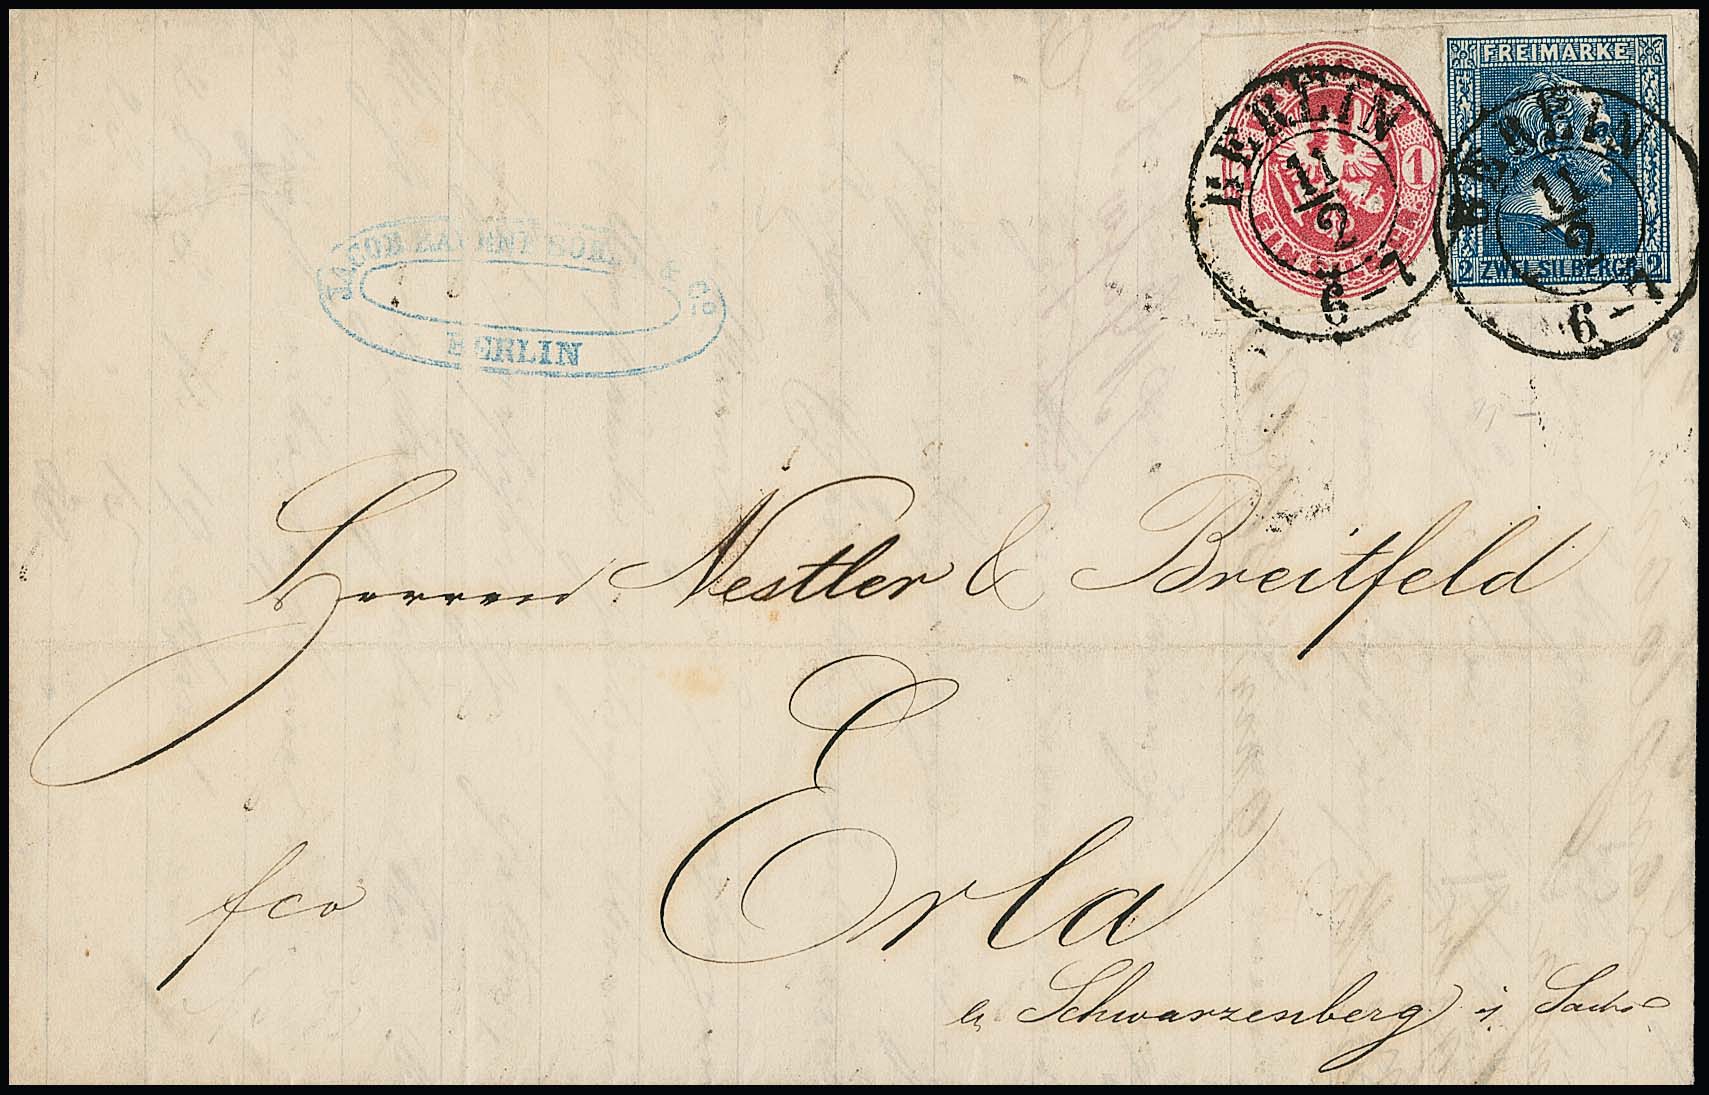 BERLIN
11/2
6-7
1
FREIMARKE
BERLIN
11/2
6-7
2 ZWEI SILBERGR. 2
JACOB & Cº
BERLIN
Herren Nestler & Breitfeld
Erla
fco
Schwarzenberg